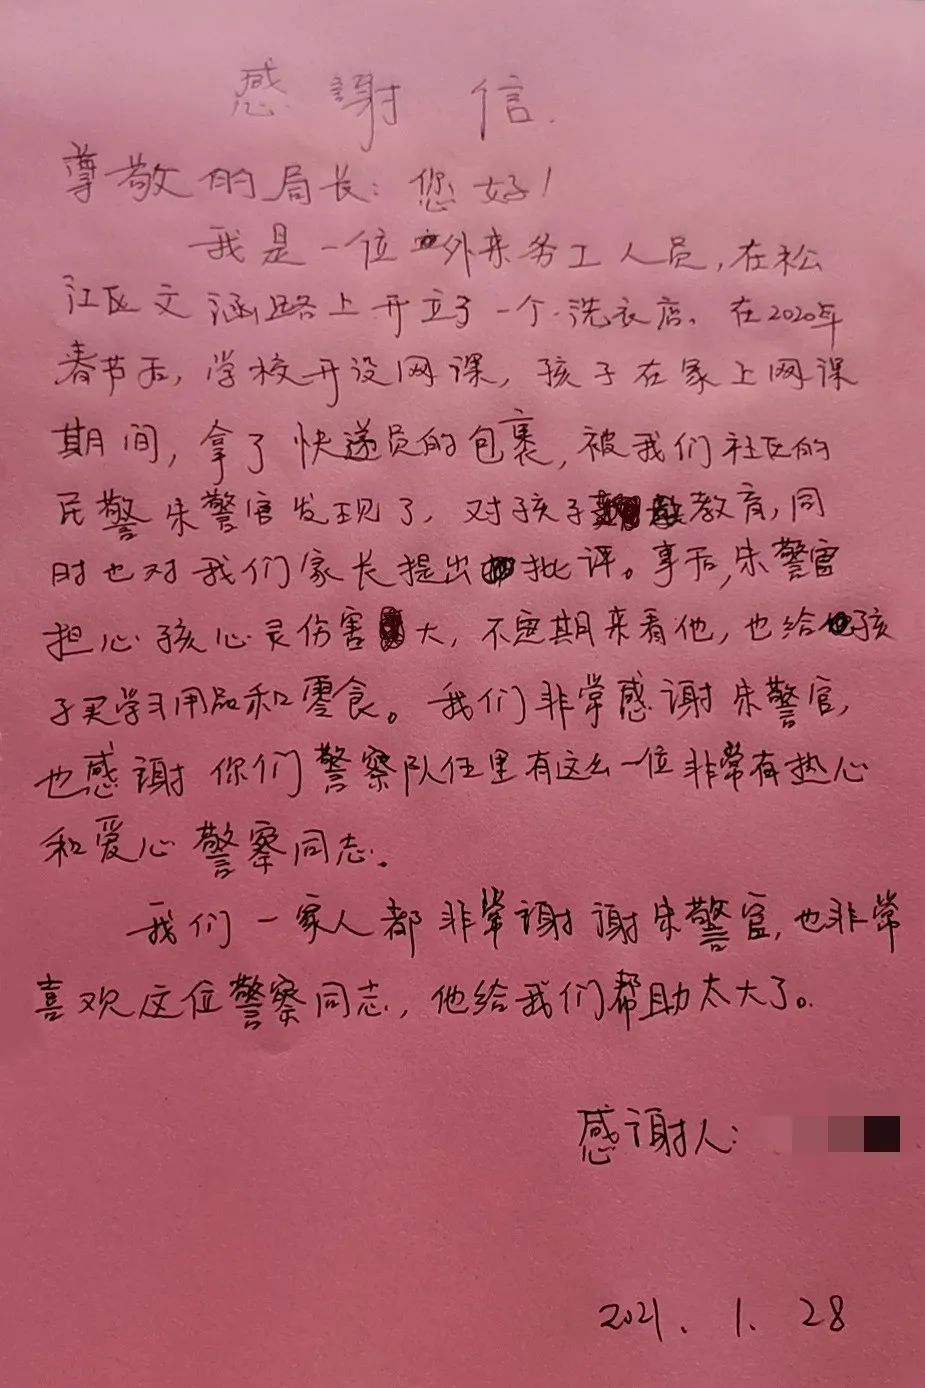 感謝信.
尊敬的局长:您好!
我是一位外来务工人员,在松
江区文涵路上开立了一个洗衣店、在2020年
春节后,学校开设网课,孩子在家上网课
期间,拿了快递员的包裹,被我们社区的
民警朱警官发现了,对孩子教育,同
时也对我们家长提出批评。事后,朱警官
担心孩心灵伤害大,不定期来看他,也给孩
子买学习用品和零食。我们非常感谢朱警官,
也感谢你们警察队伍里有这么一位非常有热心
和爱心警察同志。
我们一家人都非常谢谢朱警官,也非常
喜欢这位警察同志,他给我们帮助太大了。
感谢人:
2021.1.28